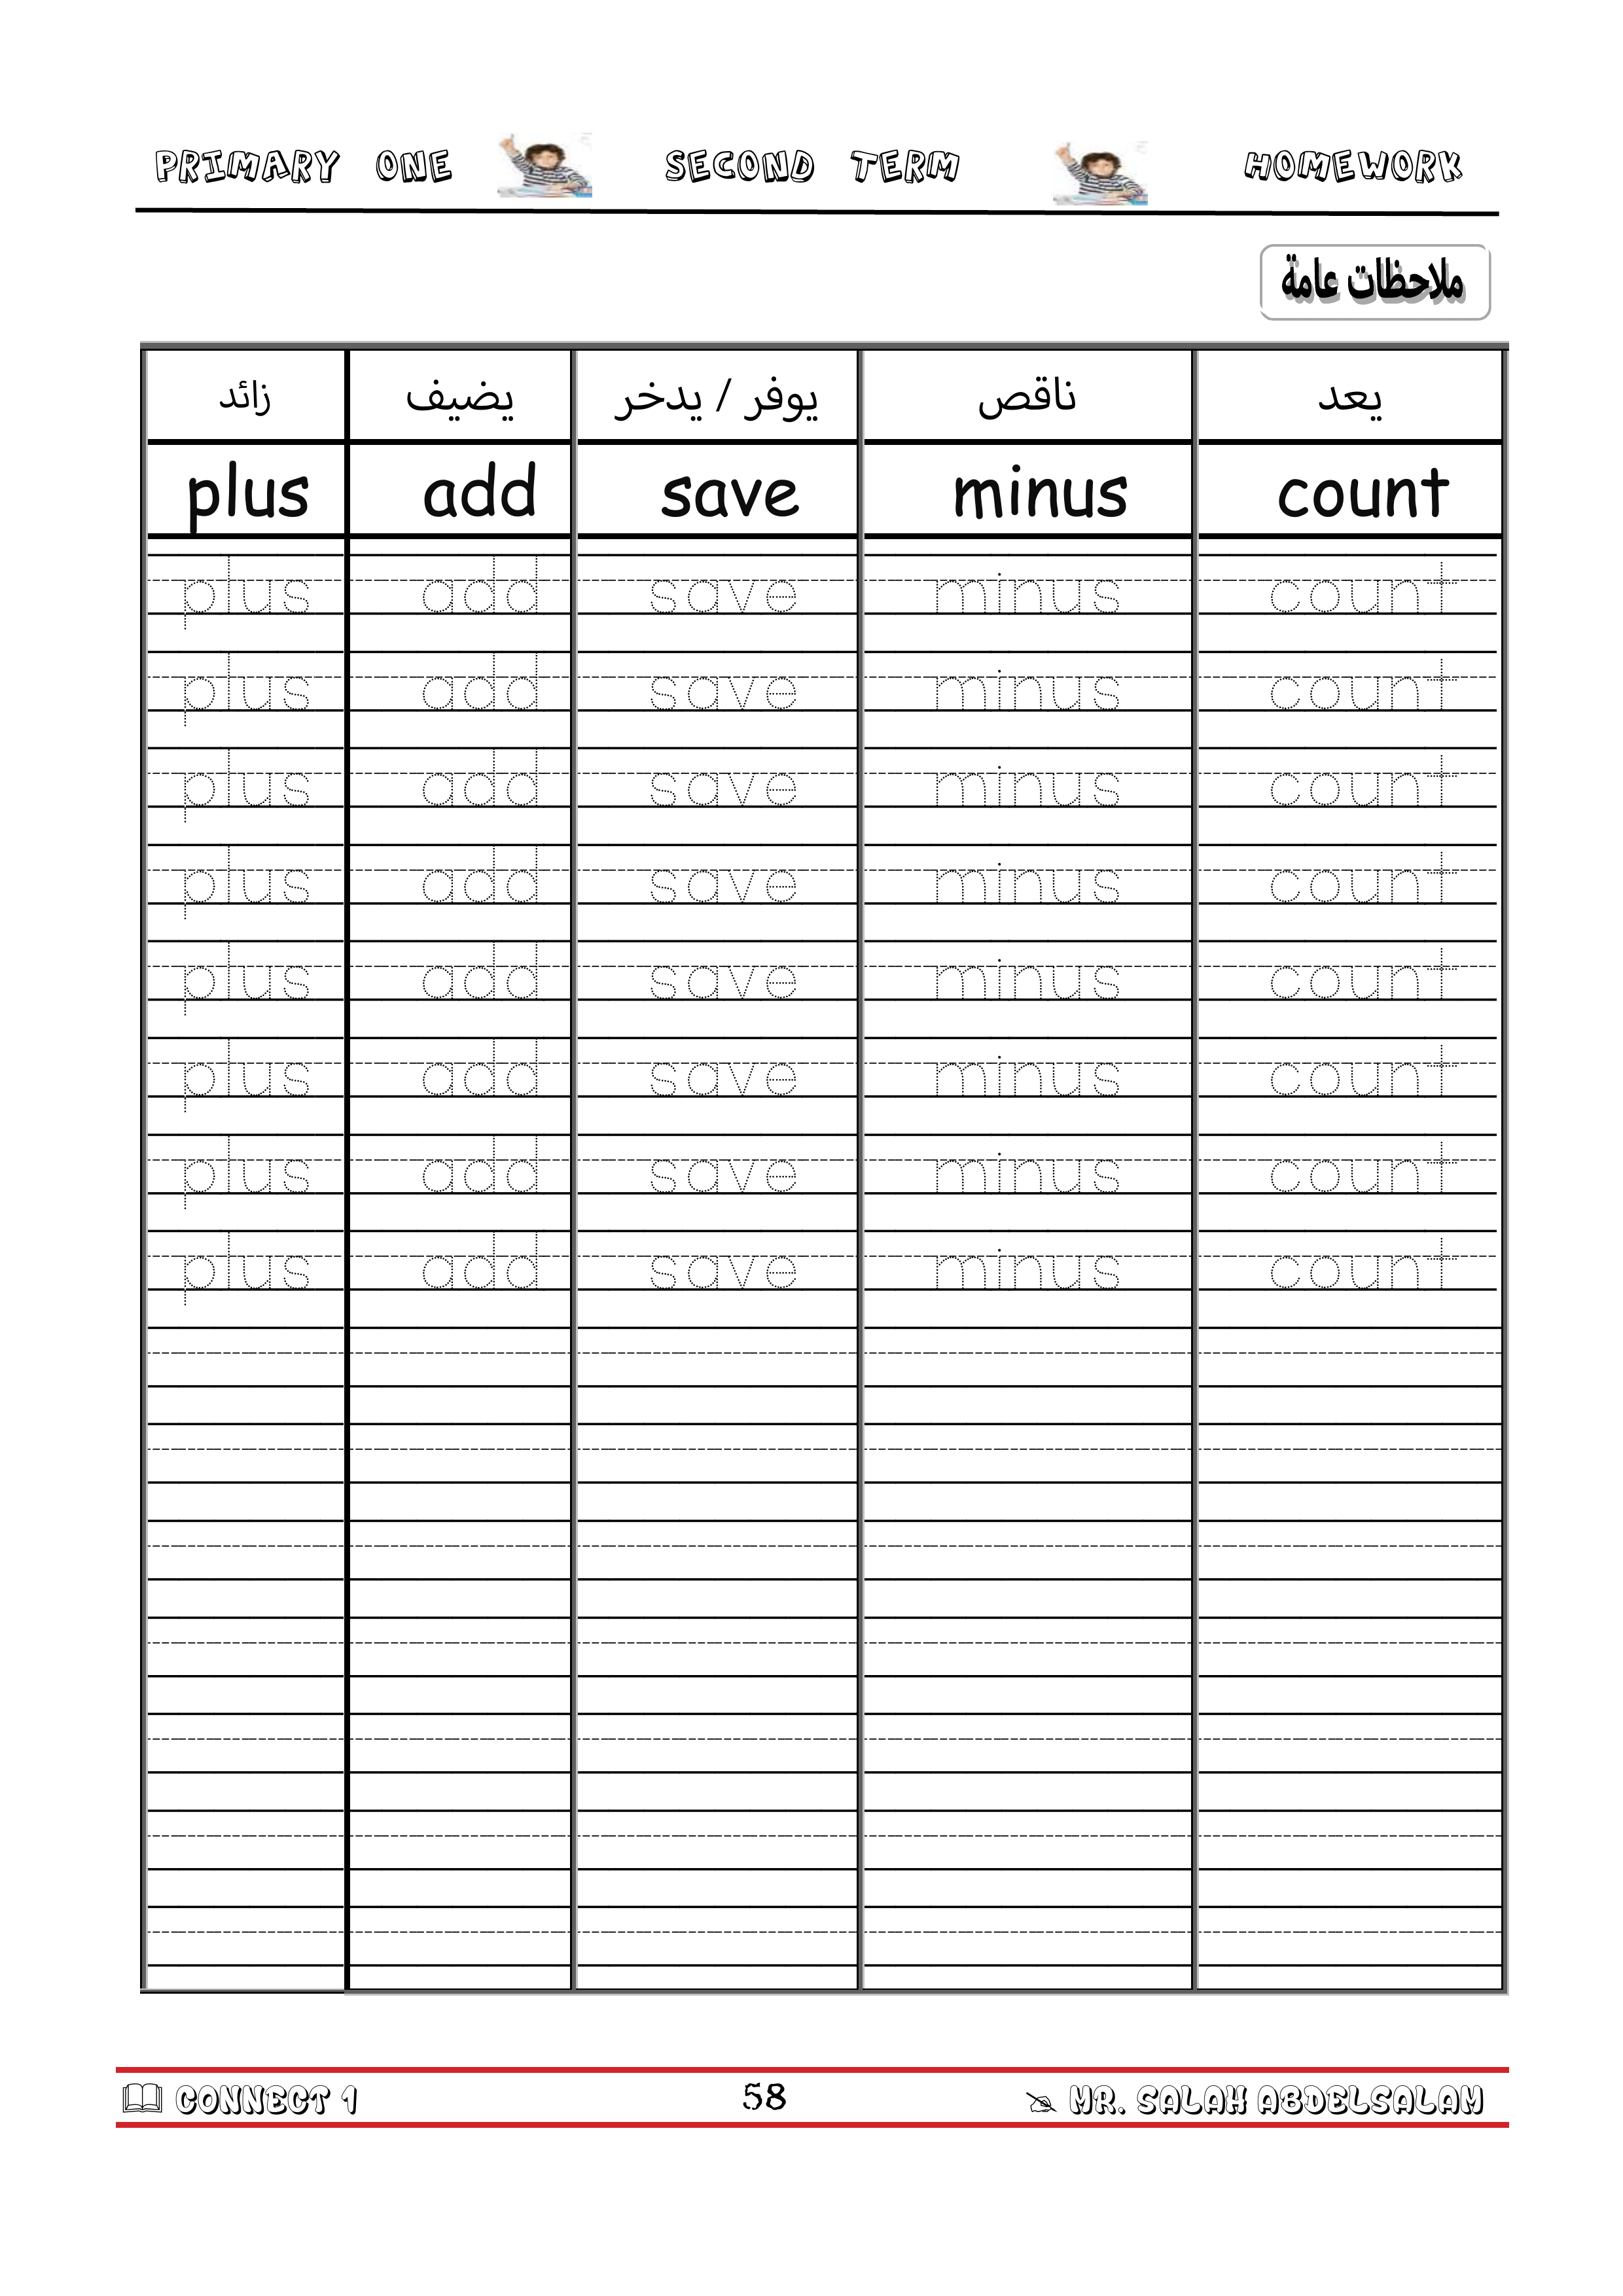 PRIMARY ONE SECOND TERM HOMEWORK
ملاحظات عامة
زائد يضيف يوفر / يدخر ناقص يعد
plus add save minus count
plus add save minus count
plus add save minus count
plus add save minus count
plus add save minus count
plus add save minus count
plus add save minus count
plus add save minus count
plus add save minus count
CONNECT 1 58 MR. SALAH ABDELSALAM